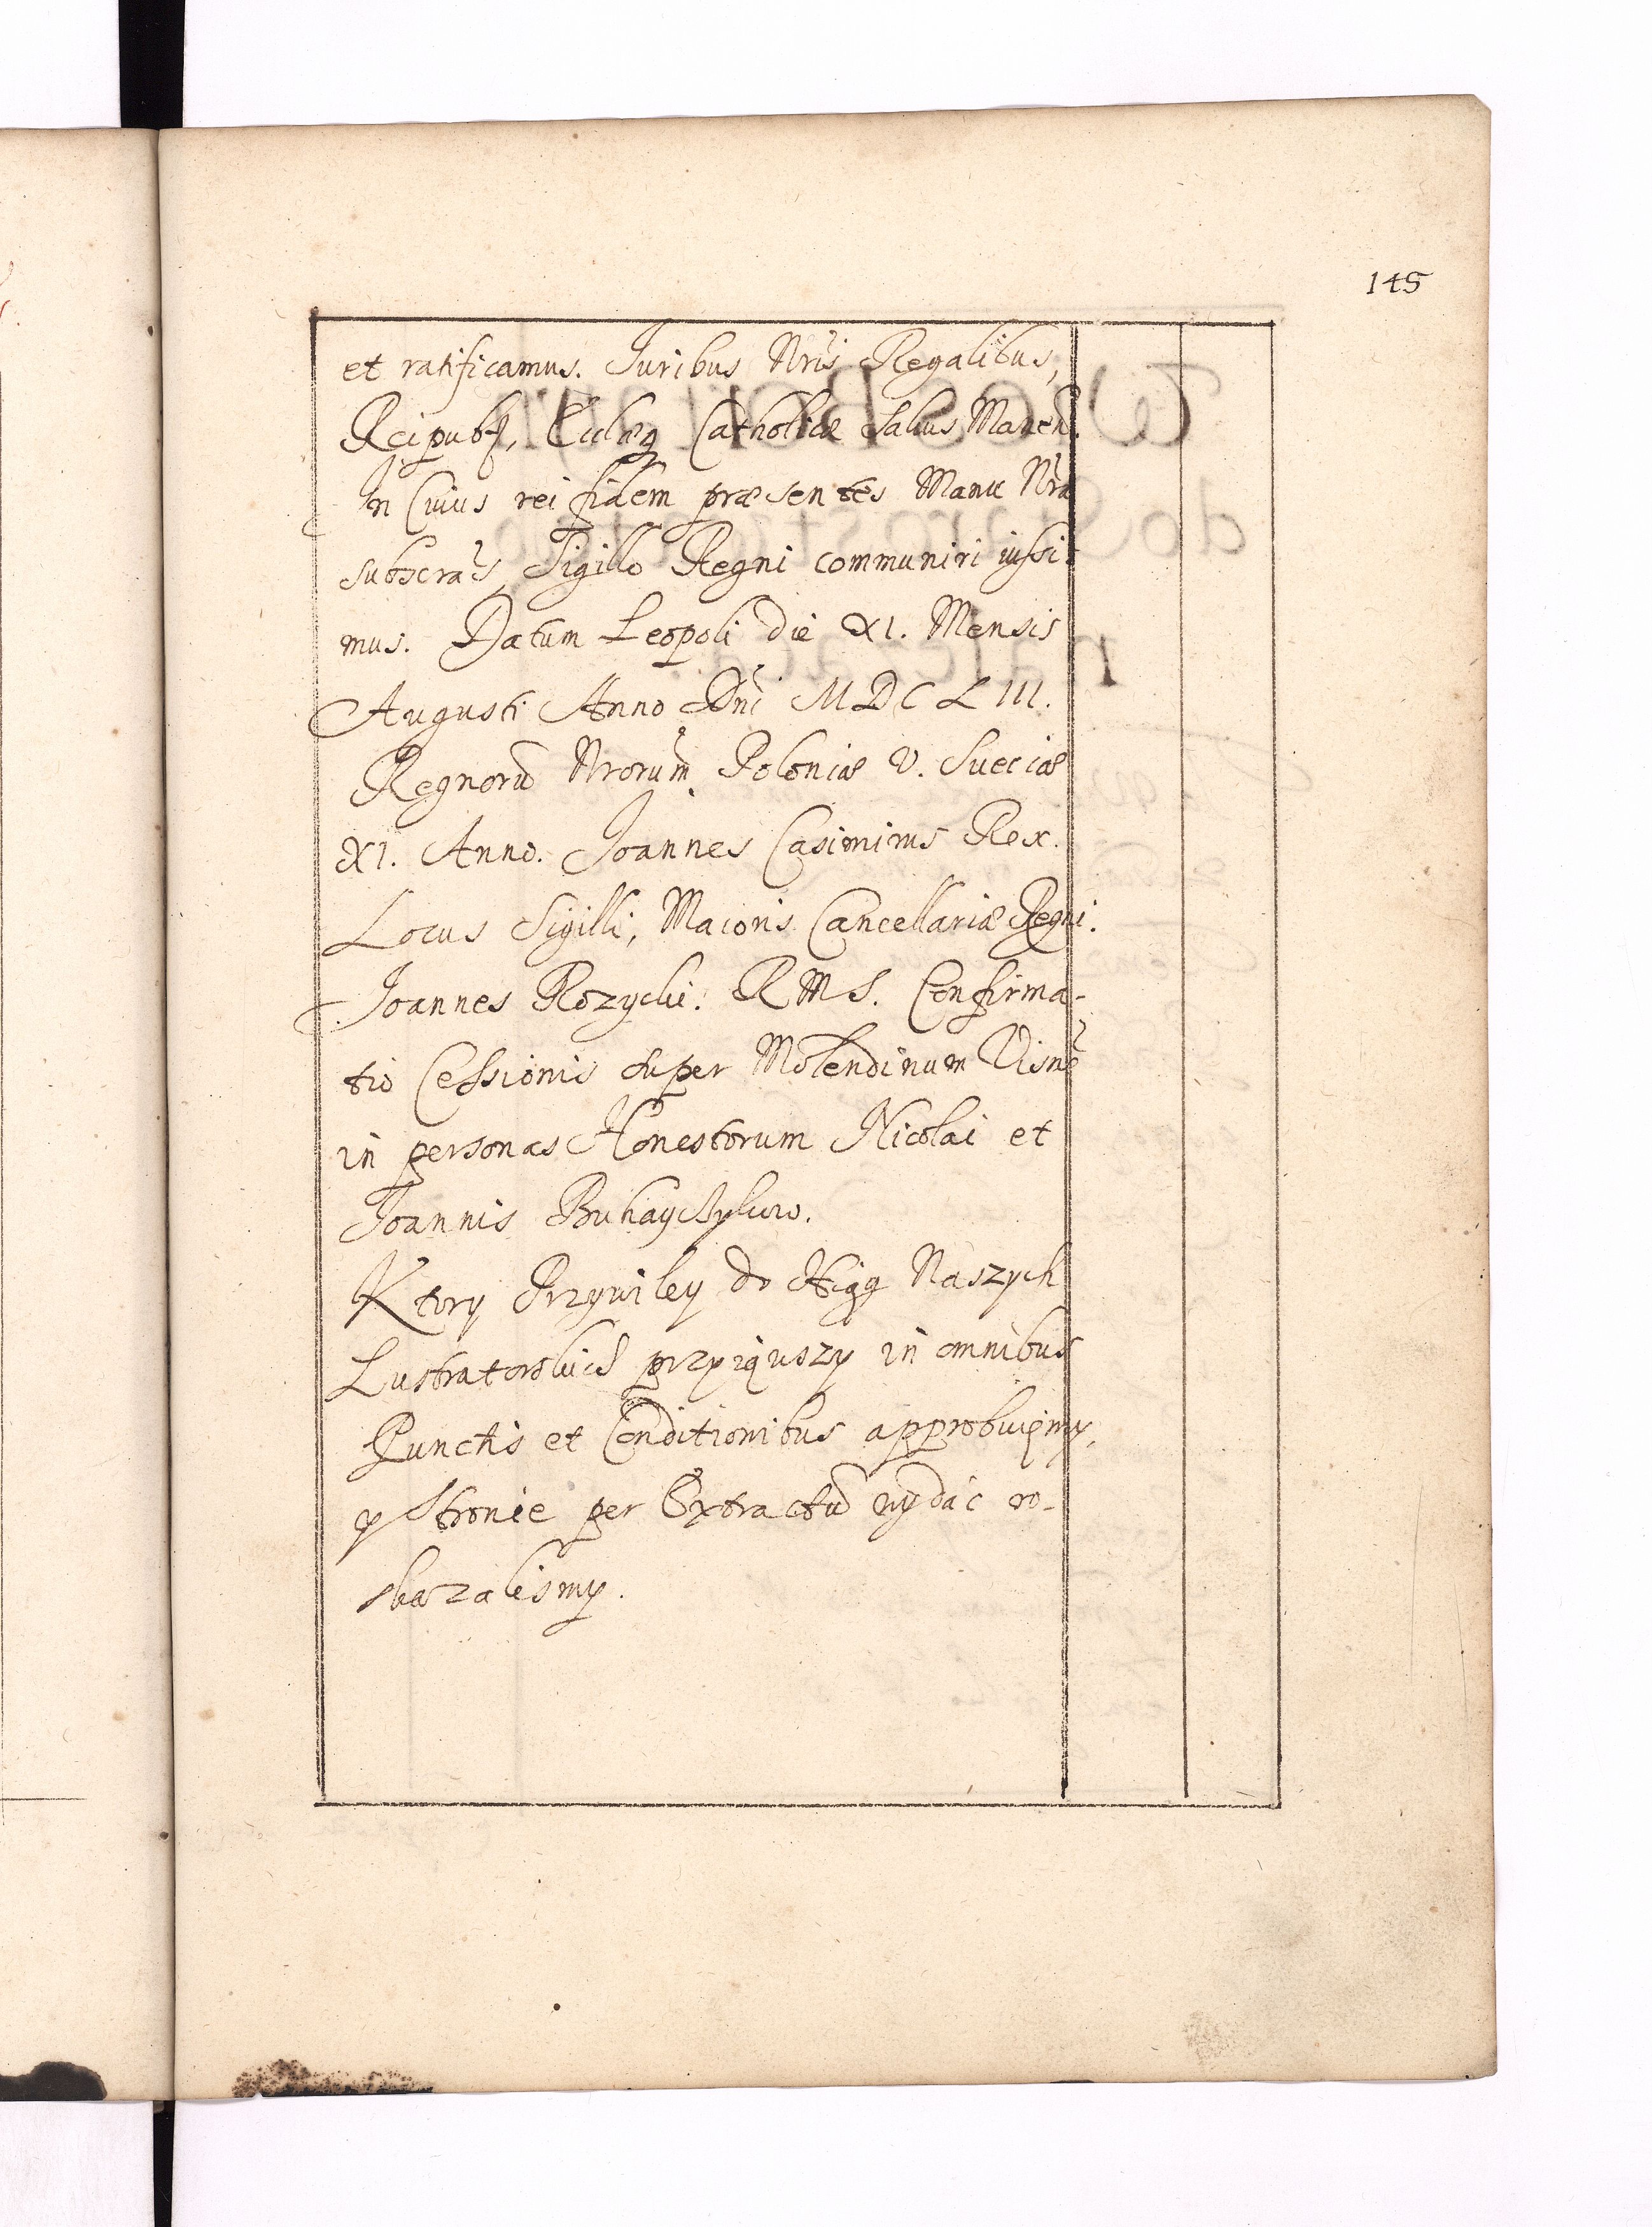 145
et ratificamus. Juribus Nris Regalibus,
Reipubl, Ecclaeq Catholicæ salvis Manen.
In Cuius rei fidem præsentes Manu Nra
subscras, Sigillo Regni communiri iussi-
mus. Datum Leopoli die XI. Mensis
Augusti Anno Dni MDCLIII.
Regnorũ Nrorum Poloniæ V. Sueciæ
XI. Anno. Joannes Casimirus Rex.
Locus Sigilli, Maioris Cancellariæ Regni.
Joannes Rozycki. RMS. Confirma-
tio Cessionis super Molendinum Visne
in personas Honestorum Nicolai et
Joannis
Ktory Przywiley do Xiąg Naszych
Lustratorskich przyiąwszy in omnibus
Punctis et Conditionibus approbuięmy,
y Stronie per Extractũ wydać ro-
skazalismy.